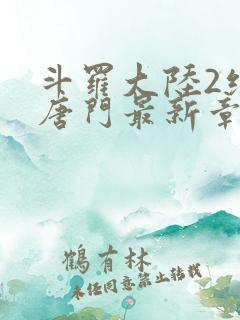 斗羅大陸2
唐門最新章
鶴有林
未經同意禁止轉載